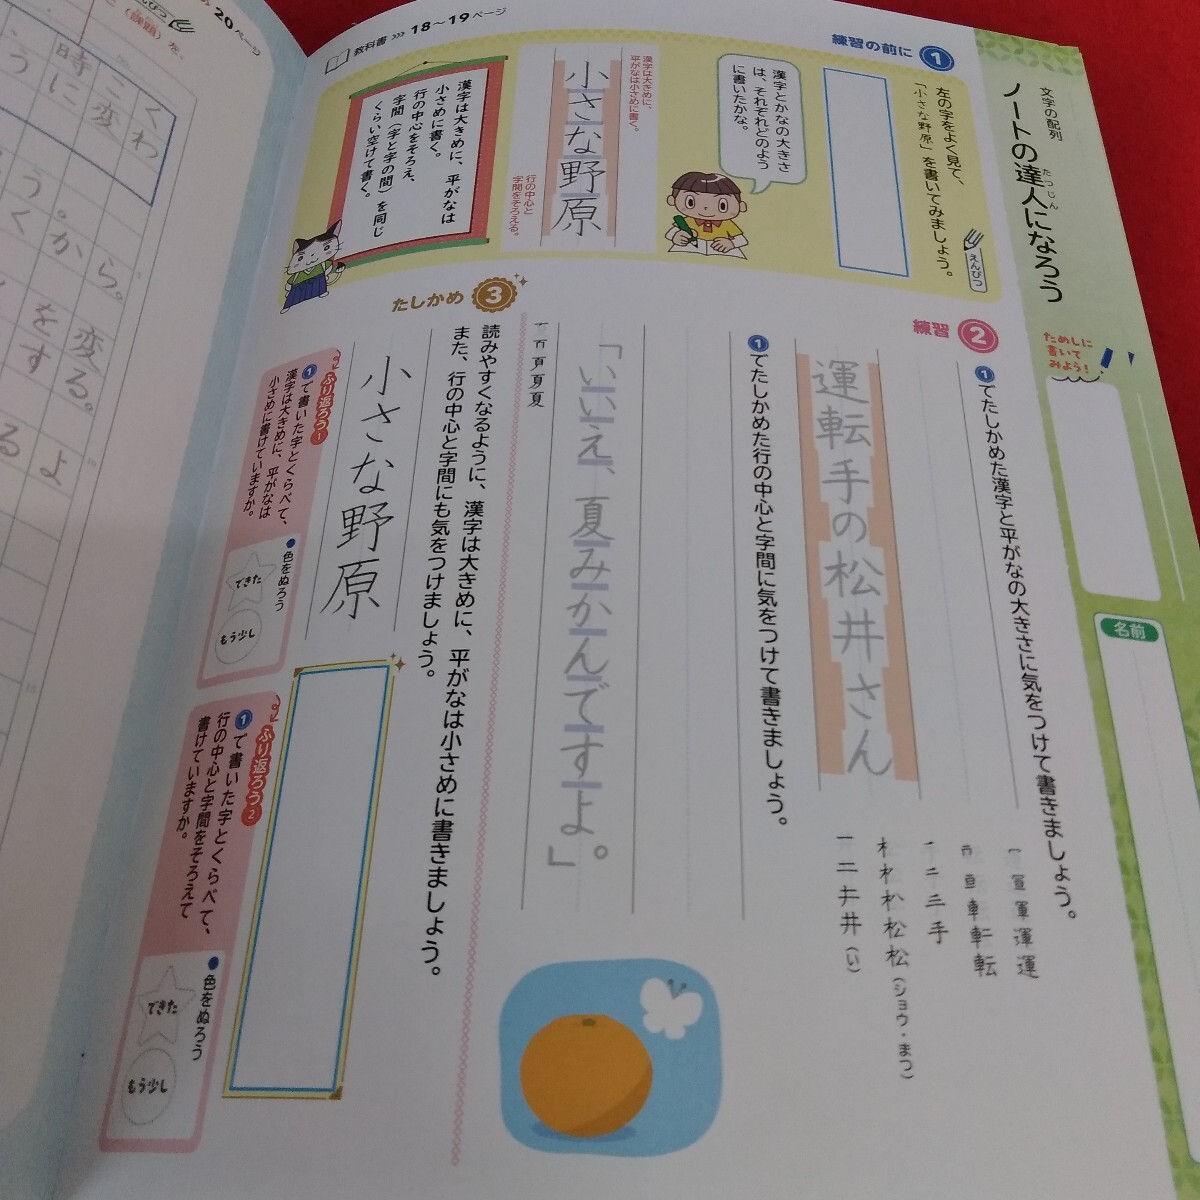 文字の配列
ノートの達人になろう
たつじん
ためしに
書いて
みよう！
名前
練習の前に 1
左の字をよく見て、
「小さな野原」を書いてみましょう。
えんぴつ
漢字とかなの大きさ
は、それぞれどのよう
に書いたかな。
漢字は大きめに、
平がなは小さめに書く。
小さな野原
行の中心と
字間をそろえる。
漢字は大きめに、平がなは
小さめに書く。
行の中心をそろえ、
字間（字と字の間）を同じ
くらい空けて書く。
教科書 18〜19ページ
練習 2
1でたしかめた漢字と平がなの大きさに気をつけて書きましょう。
運転手の松井さん
一 冒 軍 運 運
百 亘 車 転 転
一 二 三 手
木 松 松 松 松（ショウ・まつ）
一 二 キ 井（い）
1でたしかめた行の中心と字間に気をつけて書きましょう。
「いいえ、夏みかんですよ。」
一 百 頁 夏 夏
たしかめ 3
読みやすくなるように、漢字は大きめに、平がなは小さめに書きましょう。
また、行の中心と字間にも気をつけましょう。
小さな野原
ふり返ろう1
1で書いた字とくらべて、
漢字は大きめに、平がなは
小さめに書けていますか。
色をぬろう
できた
もう少し
ふり返ろう2
1で書いた字とくらべて、
行の中心と字間をそろえて
書けていますか。
色をぬろう
できた
もう少し
20ページ
（課題）を
くわ
こ変
時に
から。
変る。
をする
るよ